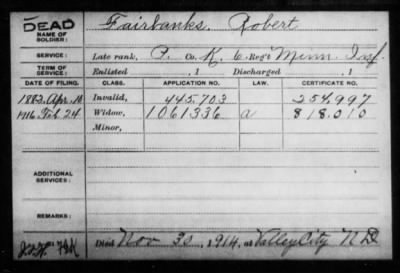 DEAD
NAME OF SOLDIER: Fairbanks, Robert
SERVICE: Late rank, P. Co. K, 6 Reg't Minn. Inf.
TERM OF SERVICE: Enlisted , 1 Discharged , 1
DATE OF FILING. CLASS. APPLICATION NO. LAW. CERTIFICATE NO.
1882, Apr. 10 Invalid, 445.703 254.997
1916, Feb 24. Widow, 1061336 a 818.010
Minor,
ADDITIONAL SERVICES:
REMARKS:
Died Nov 30, 1914, at Valley City N D